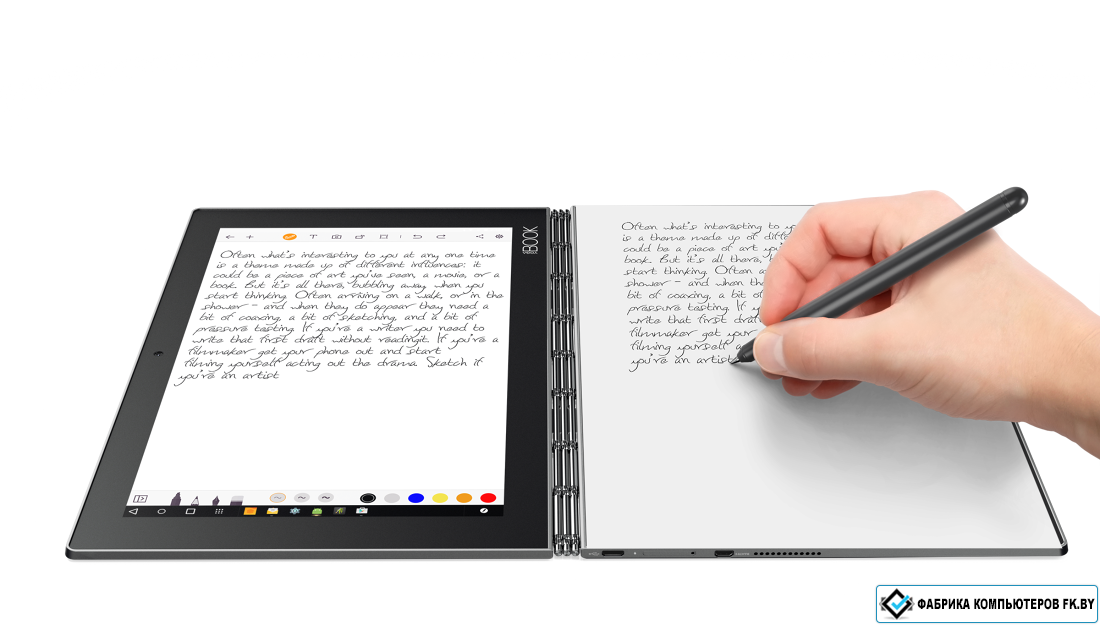 Often what's interesting to you at any one time
is a theme made up of different influences: it
could be a piece of art you've seen, a movie, or a
book. But it's all there, bubbling away when you
start thinking. Often arriving on a walk, or in the
shower - and when they do appear they need a
bit of coaxing, a bit of sketching, and a bit of
pressure testing. If you're a writer you need to
write that first draft without readingit. If you're a
filmmaker get your phone out and start
filming yourself acting out the drama. Sketch if
you're an artist
BOOK
Often what's interesting to you
is a theme made up of diff
could be a piece of art
book. But it's all there,
start thinking. Often a
shower - and when th
bit of coaxing, a bit of
pressure testing. If y
write that first draf
filmmaker get your
filming yourself a
you're an artist
ФАБРИКА КОМПЬЮТЕРОВ FK.BY